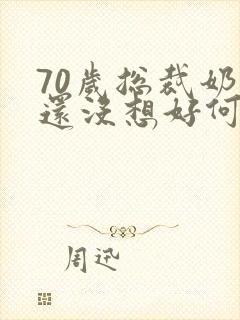 70歲總裁奶
還沒想好何
周迅